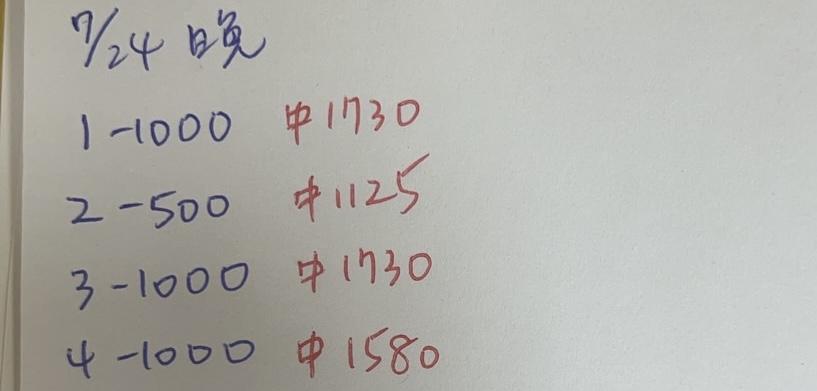 7/24 晚
1-1000 中1730
2-500 中1125
3-1000 中1730
4-1000 中1580